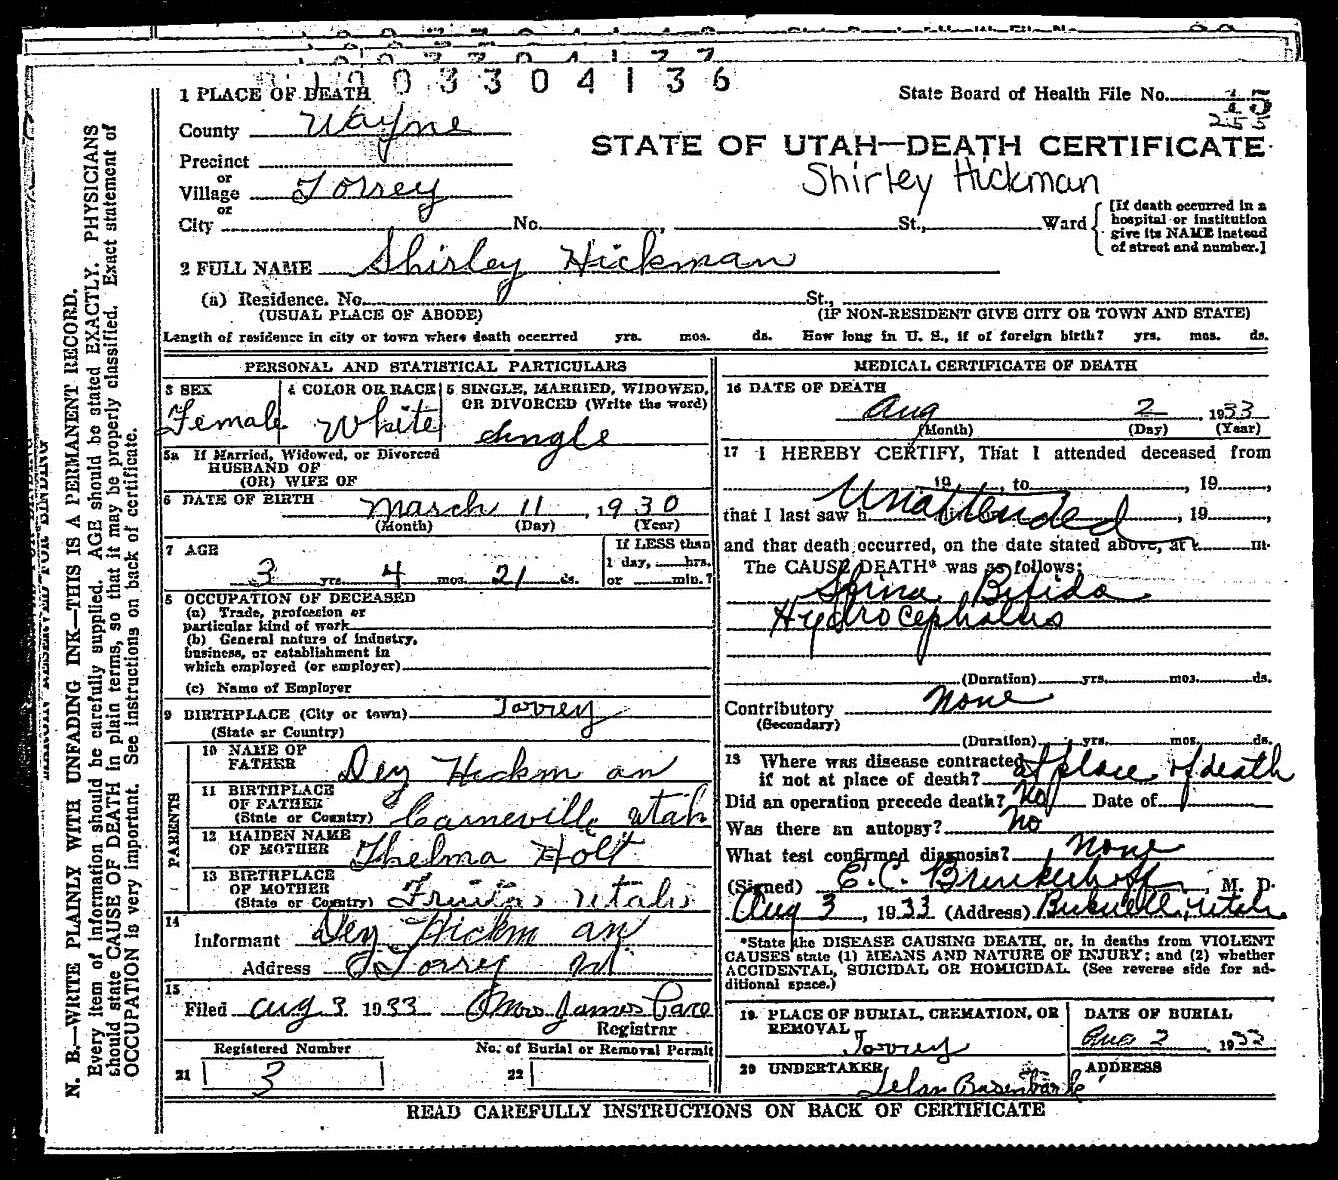 01003304136
1 PLACE OF DEATH
State Board of Health File No.
255
County Wayne
STATE OF UTAH—DEATH CERTIFICATE
Precinct
Shirley Hickman
or
Village Torrey
or
City No. , St., Ward
[If death occurred in a
hospital or institution
give its NAME instead
of street and number.]
2 FULL NAME Shirley Hickman
(a) Residence. No. St.,
(USUAL PLACE OF ABODE) (IF NON-RESIDENT GIVE CITY OR TOWN AND STATE)
Length of residence in city or town where death occurred yrs. mos. ds. How long in U. S., if of foreign birth? yrs. mos. ds.
PERSONAL AND STATISTICAL PARTICULARS
3 SEX 4 COLOR OR RACE 5 SINGLE, MARRIED, WIDOWED,
OR DIVORCED (Write the word)
Female White Single
5a If Married, Widowed, or Divorced
HUSBAND OF
(OR) WIFE OF
6 DATE OF BIRTH March 11, 1930
(Month) (Day) (Year)
7 AGE If LESS than
1 day, hrs.
3 yrs. 4 mos. 21 ds. or min.?
8 OCCUPATION OF DECEASED
(a) Trade, profession or
particular kind of work
(b) General nature of industry,
business, or establishment in
which employed (or employer)
(c) Name of Employer
9 BIRTHPLACE (City or town) Torrey
(State or Country)
PARENTS
10 NAME OF
FATHER Dey Hickman
11 BIRTHPLACE
OF FATHER
(State or Country) Caineville Utah
12 MAIDEN NAME
OF MOTHER Thelma Holt
13 BIRTHPLACE
OF MOTHER
(State or Country) Fruita Utah
14
Informant Dey Hickman
Address Torrey Ut
15
Filed Aug 3 1933 Mrs James Pace
Registrar
Registered Number No. of Burial or Removal Permit
21 3 22
MEDICAL CERTIFICATE OF DEATH
16 DATE OF DEATH
Aug 2, 1933
(Month) (Day) (Year)
17 I HEREBY CERTIFY, That I attended deceased from
, 19 , to , 19 ,
Unattended
that I last saw h , 19 ,
and that death occurred, on the date stated above, at m.
The CAUSE DEATH* was as follows:
Spina Bifida
Hydrocephalus
(Duration) yrs. mos. ds.
Contributory None
(Secondary)
(Duration) yrs. mos. ds.
18 Where was disease contracted
if not at place of death? at place of death
Did an operation precede death? No Date of
Was there an autopsy? No
What test confirmed diagnosis? None
(Signed) E.C. Brinkerhoff, M. D.
Aug 3, 1933 (Address) Bicknell, Utah
*State the DISEASE CAUSING DEATH, or, in deaths from VIOLENT
CAUSES state (1) MEANS AND NATURE OF INJURY; and (2) whether
ACCIDENTAL, SUICIDAL OR HOMICIDAL. (See reverse side for ad-
ditional space.)
19 PLACE OF BURIAL, CREMATION, OR
REMOVAL
Torrey
DATE OF BURIAL
Aug 2, 1933
20 UNDERTAKER
ADDRESS
READ CAREFULLY INSTRUCTIONS ON BACK OF CERTIFICATE
N. B.—WRITE PLAINLY WITH UNFADING INK—THIS IS A PERMANENT RECORD.
Every item of information should be carefully supplied. AGE should be stated EXACTLY. PHYSICIANS
should state CAUSE OF DEATH in plain terms, so that it may be properly classified. Exact statement of
OCCUPATION is very important. See instructions on back of certificate.